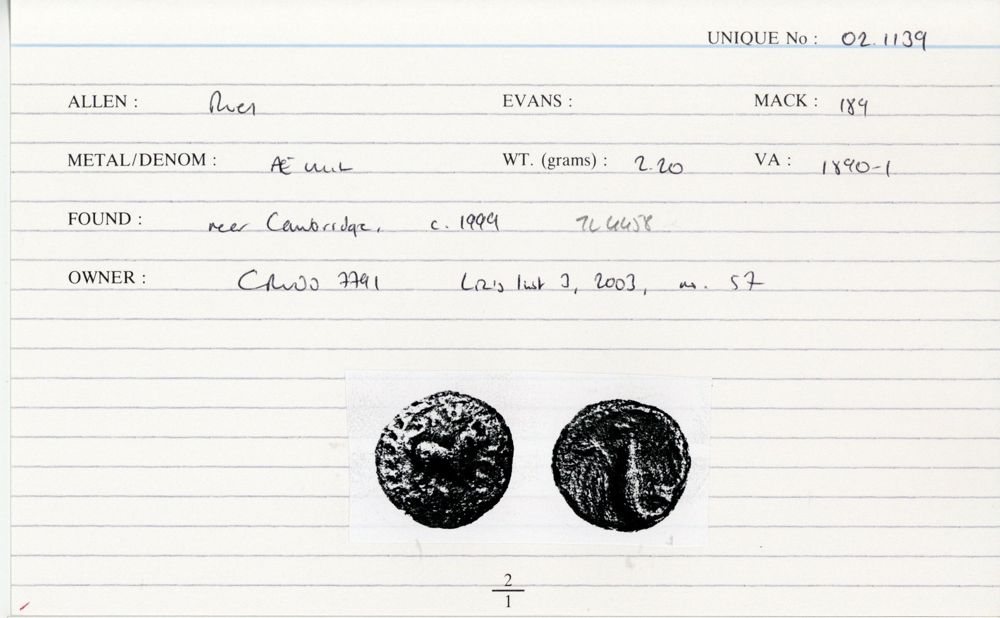 UNIQUE No : 02.1139
ALLEN : River EVANS : MACK : 189
METAL/DENOM : Æ unit WT. (grams) : 2.20 VA : 1890-1
FOUND : near Cambridge, c. 1999 TL 4458
OWNER : list 3, 2003, no. 57
2
1